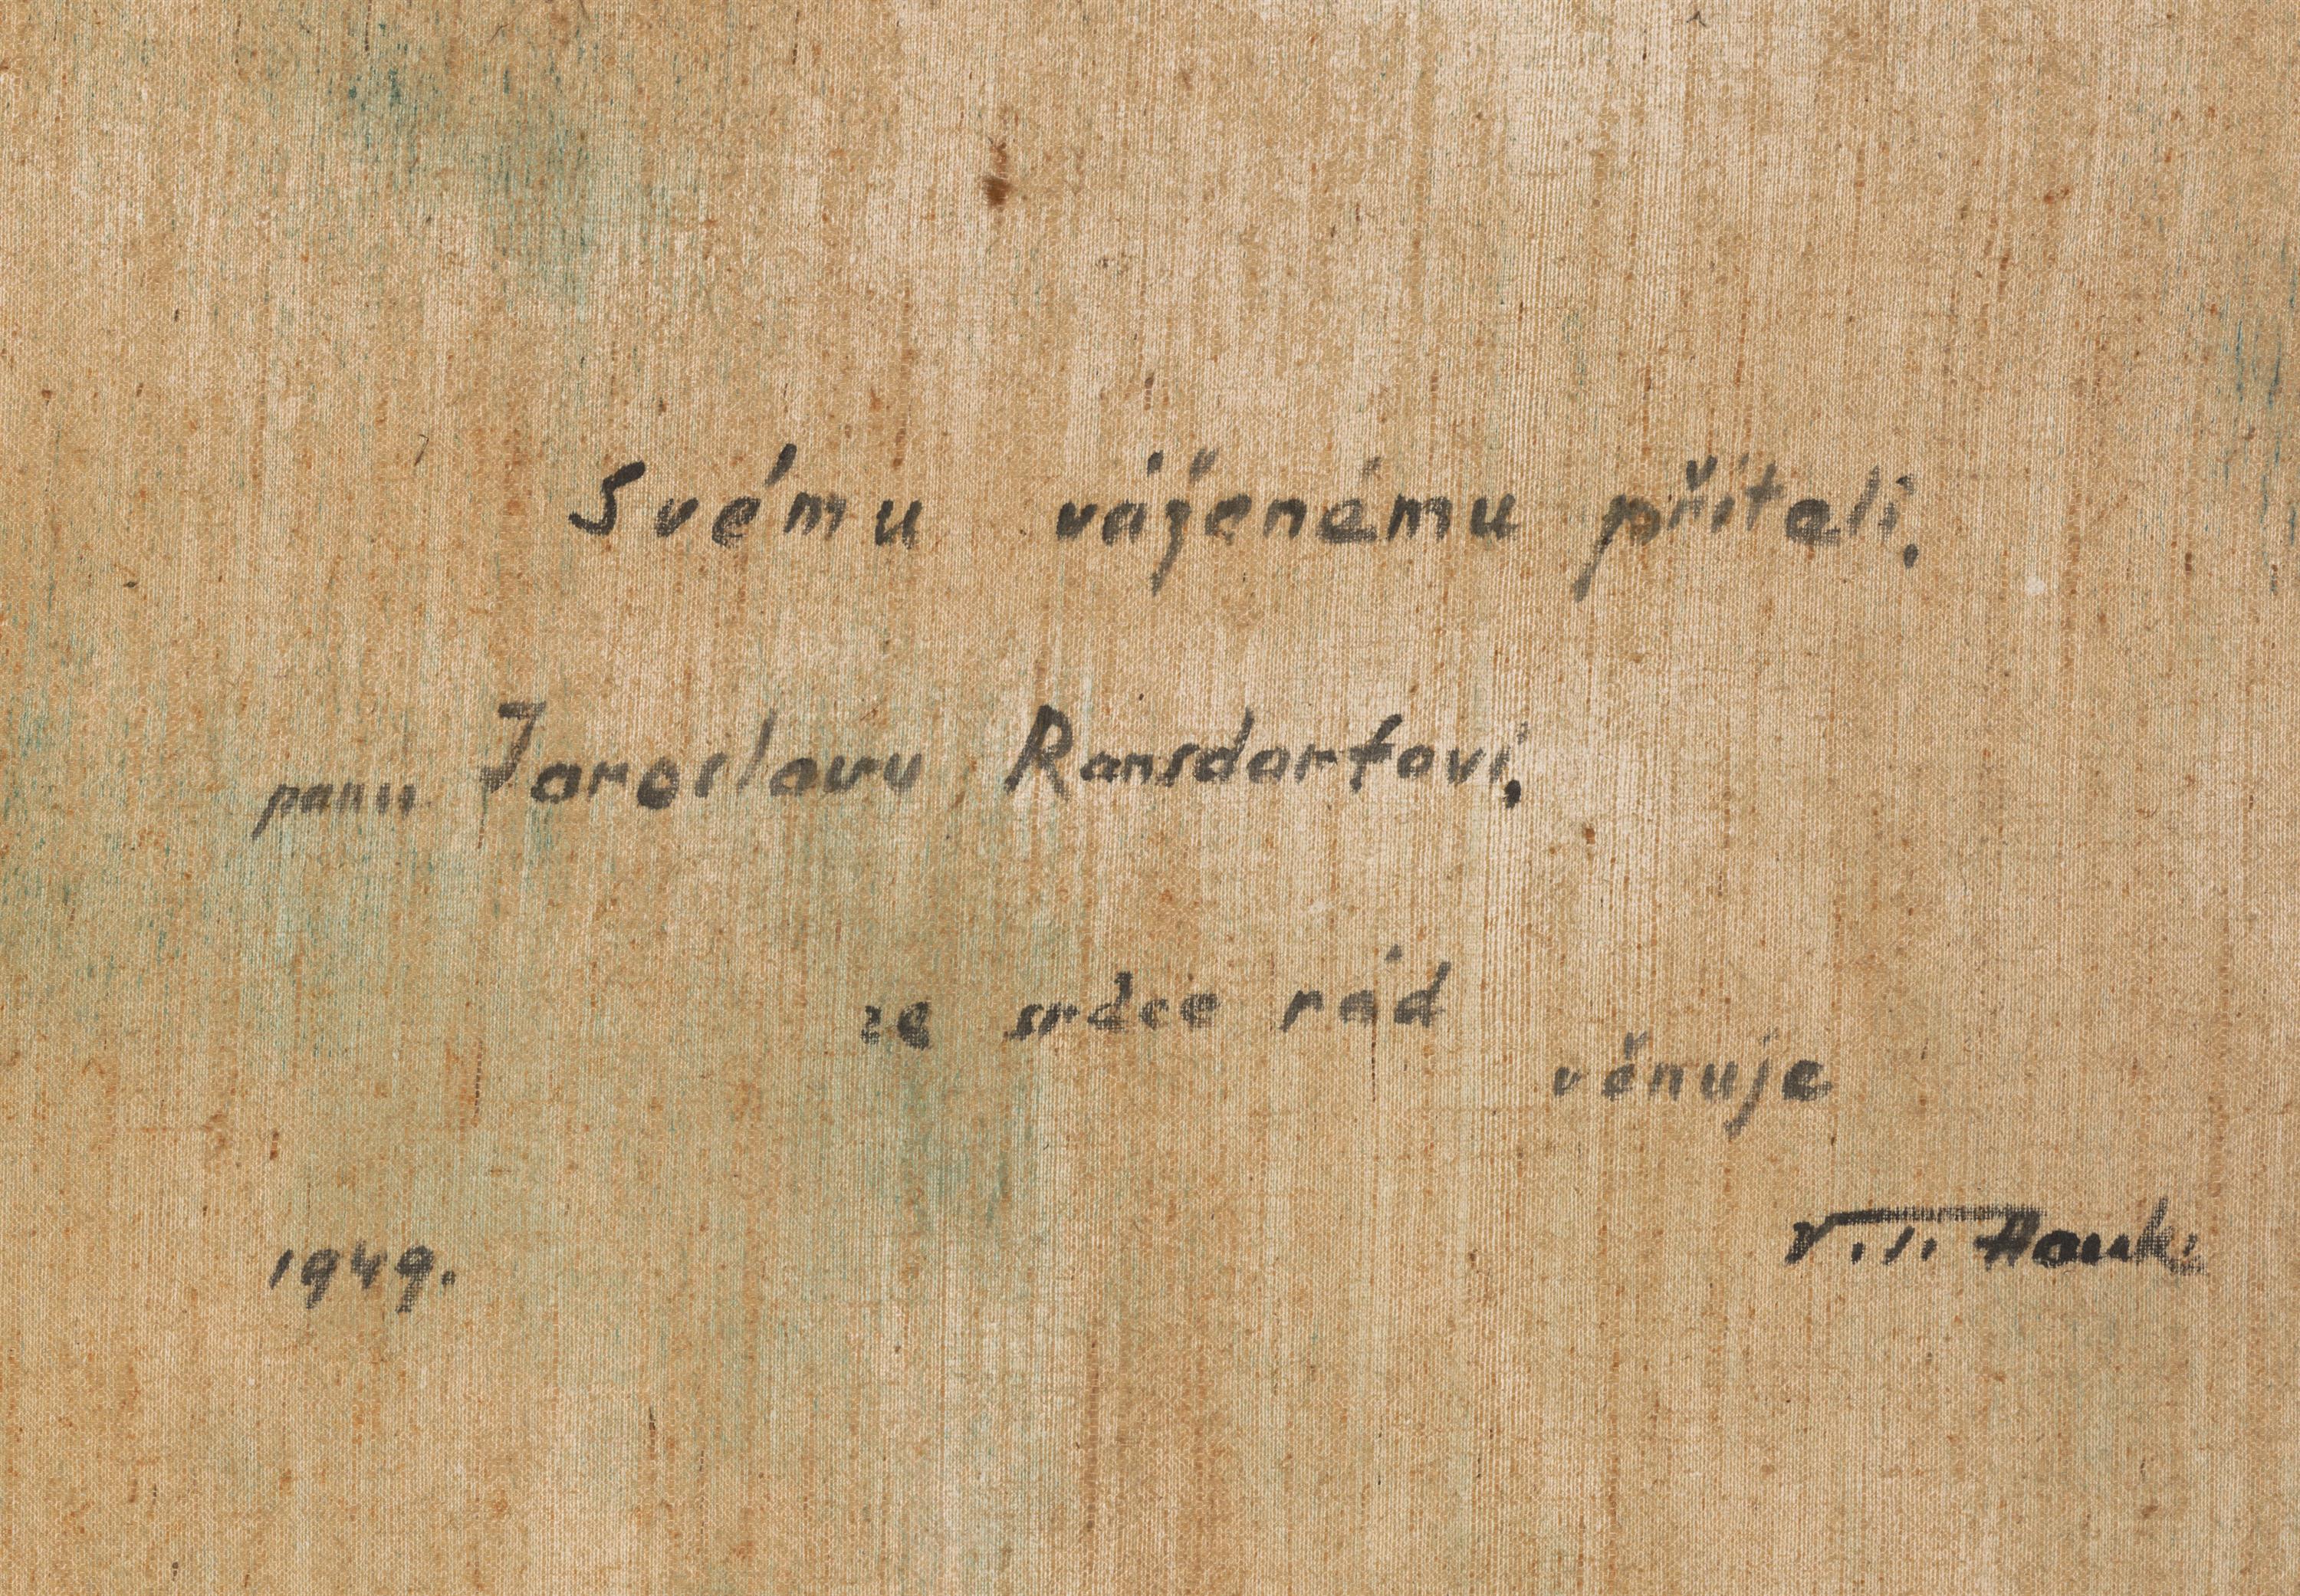 Svému váženému příteli,
panu Jaroslavu Ransdorfovi,
ze srdce rád
věnuje
1949. V. J. Hauk.